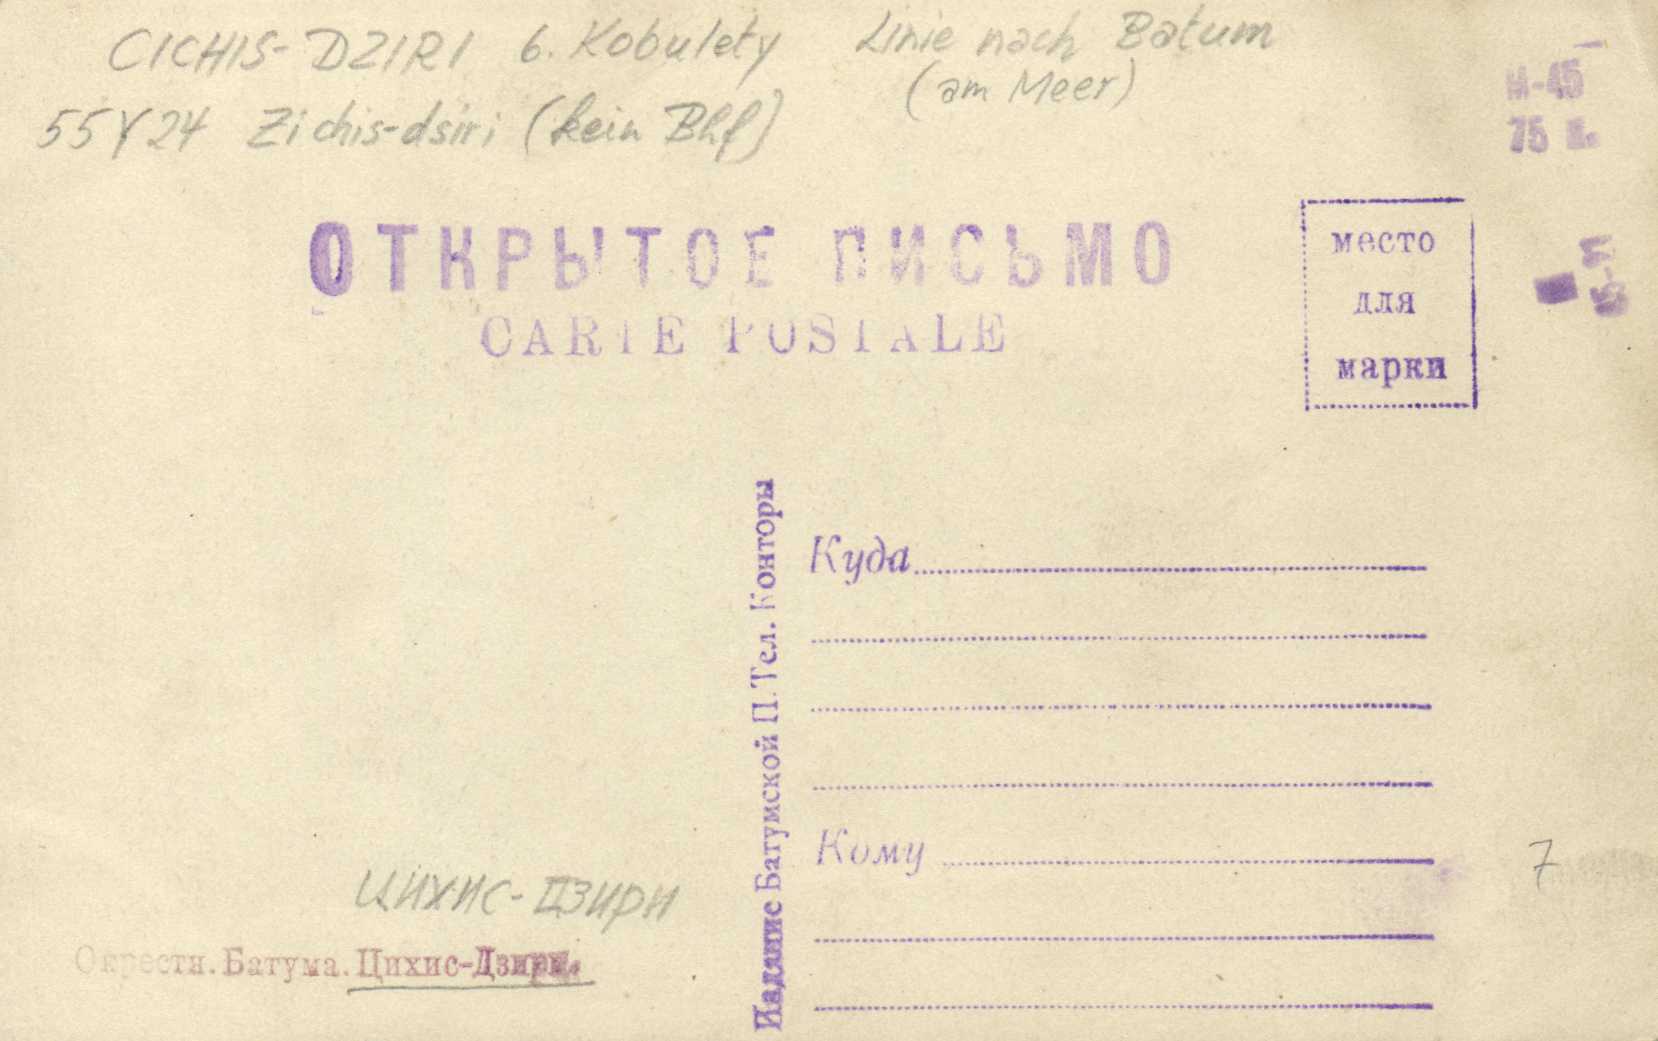 CICHIS-DZIRI b. Kobulety Linie nach Batum
(am Meer)
55Y24 Zichis-dsiri (kein Bhf)
М-45
75 к.
ОТКРЫТОЕ ПИСЬМО
CARTE POSTALE
место
для
марки
Издание Батумской П.Тел. Конторы
Куда
Кому
7
ЦИХИС-ДЗИРИ
Окрестн. Батума. Цихис-Дзири.